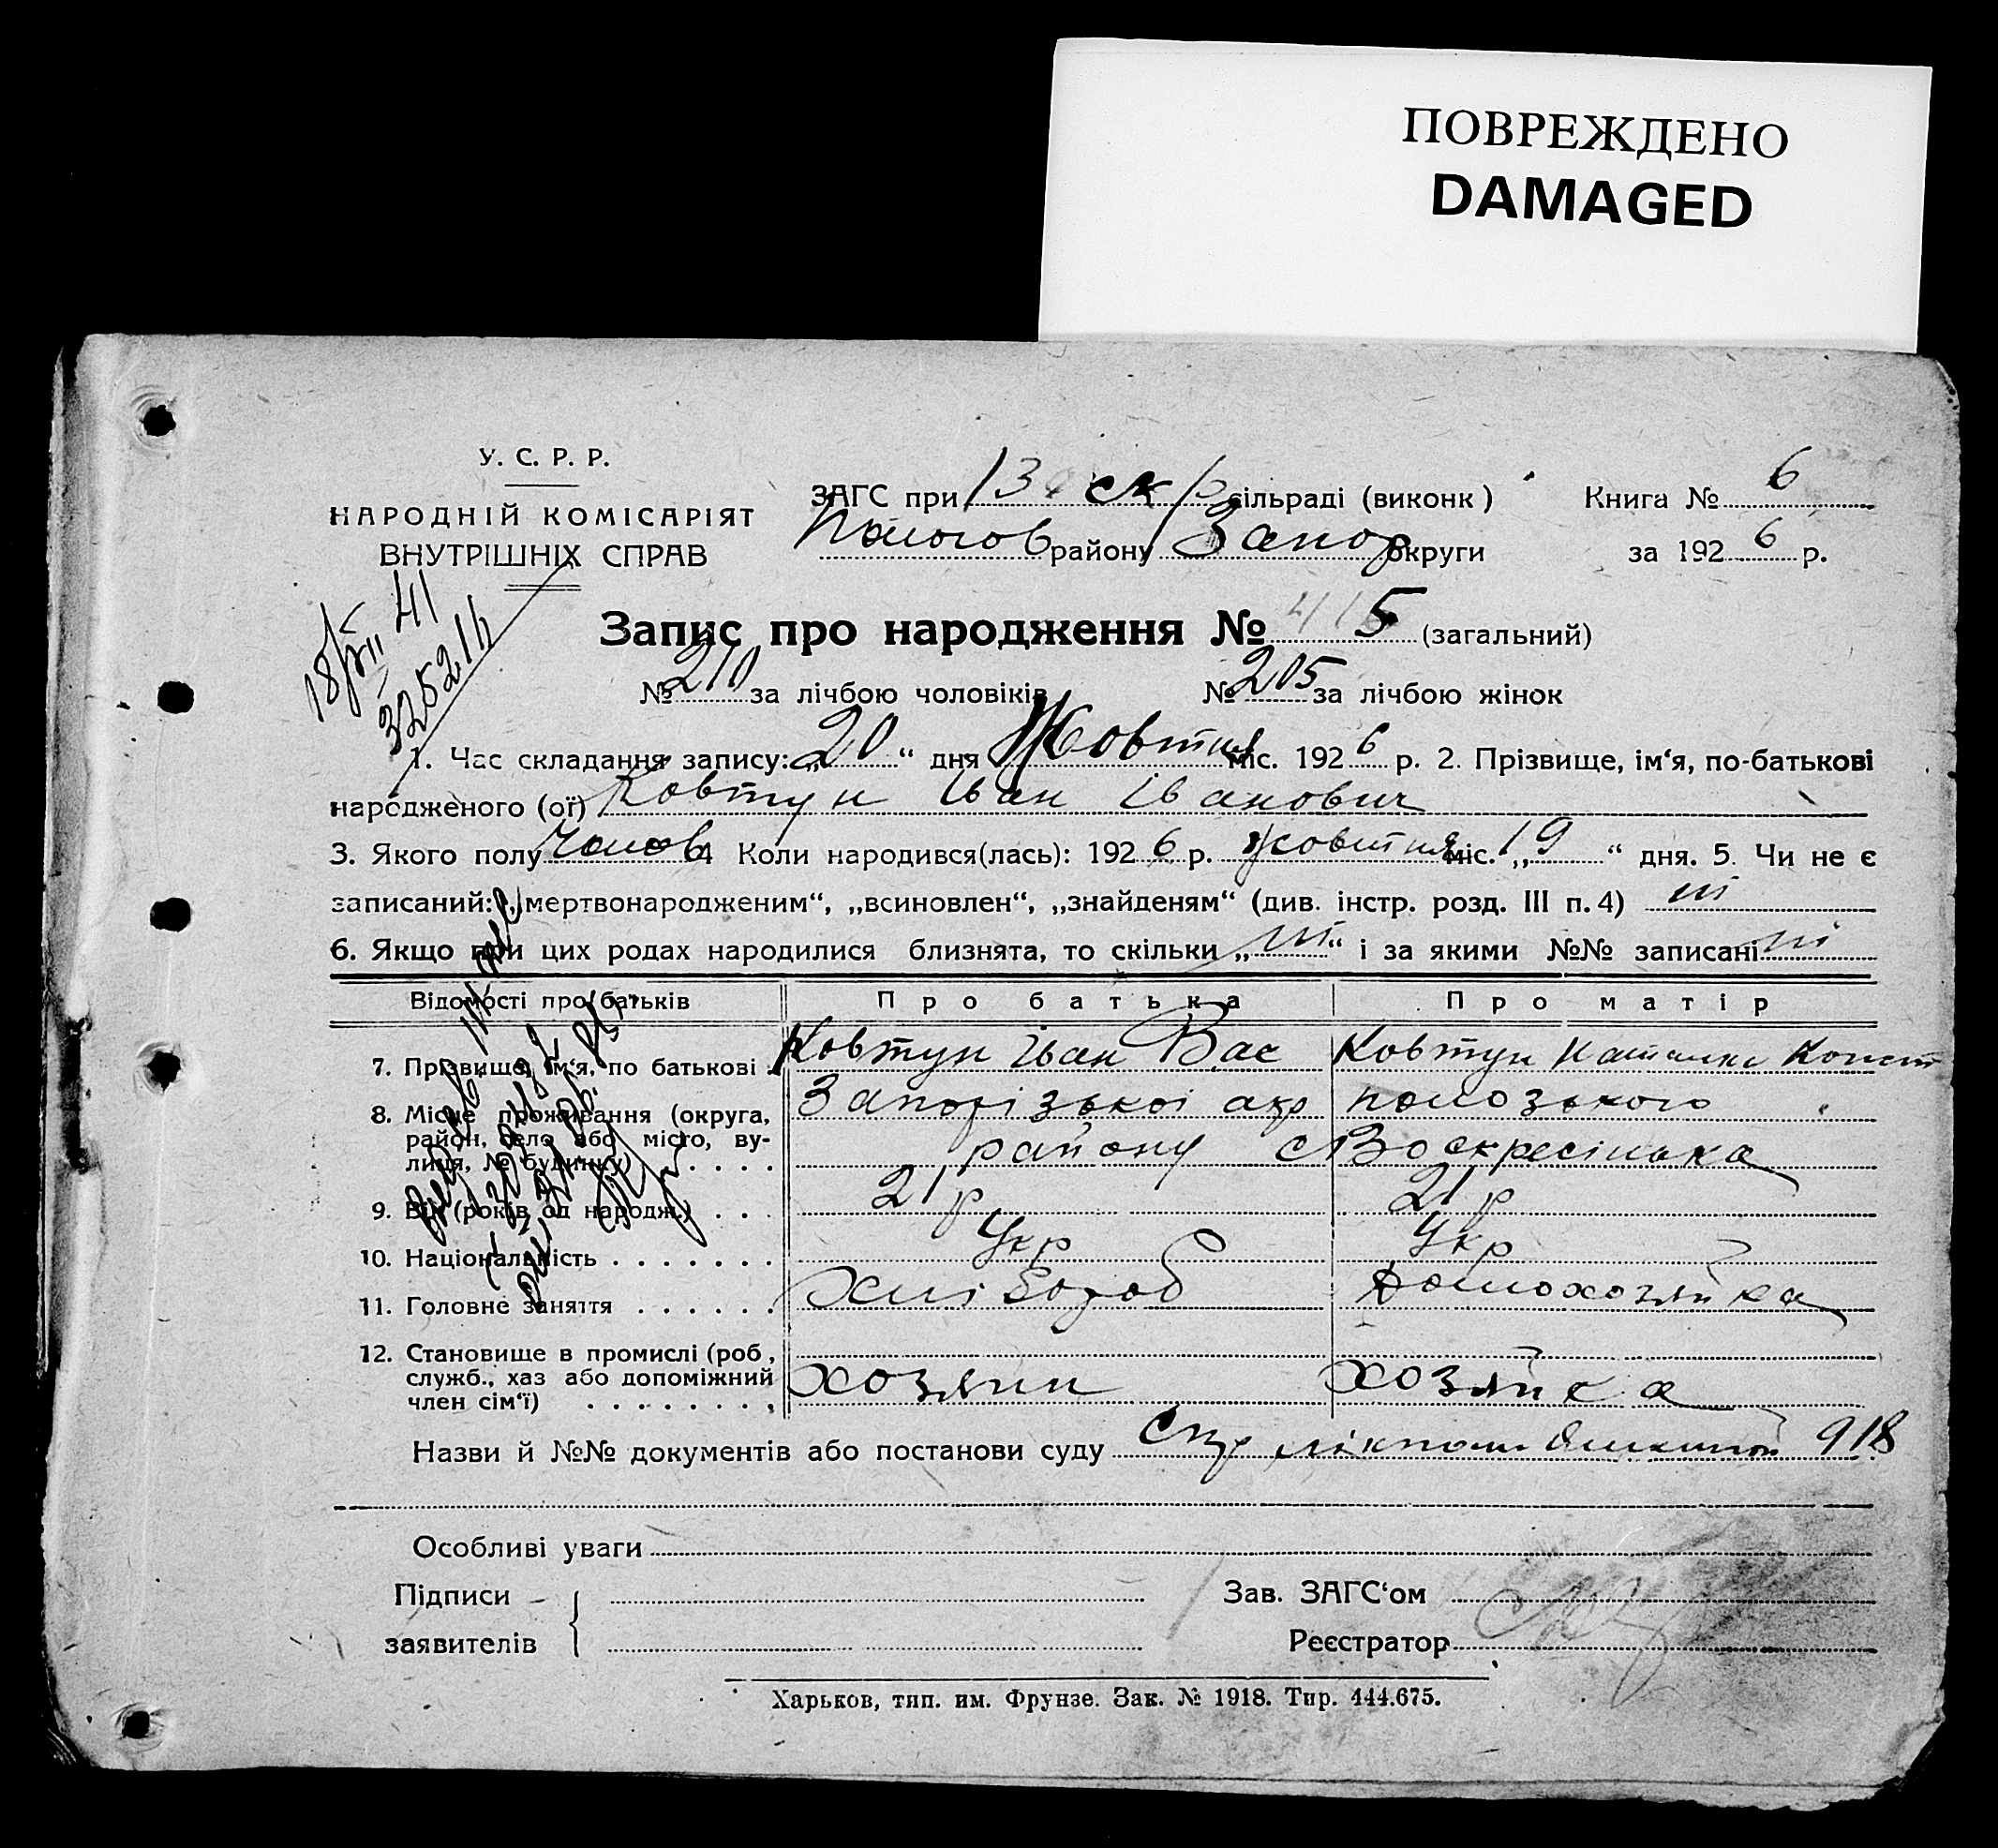 ПОВРЕЖДЕНО
DAMAGED
У. С. Р. Р.
НАРОДНІЙ КОМІСАРІЯТ
ВНУТРІШНІХ СПРАВ
ЗАГС при сільраді (виконк) Книга № 6
Пологов району Запор округи за 1926 р.
18/VII 41
Запис про народження № 415 (загальний)
№ 210 за лічбою чоловіків № 205 за лічбою жінок
1. Час складання запису: „20“ дня Жовтня міс. 1926 р. 2. Прізвище, ім‘я, по-батькові
народженого (ої) Ковтун Іван Іванович
3. Якого полу Чолов 4 Коли народився(лась): 1926 р. Жовтня міс. „19“ дня. 5. Чи не є
записаний: „мертвонародженим“, „всиновлен“, „знайденям“ (див. інстр. розд. III п. 4) ні
6. Якщо при цих родах народилися близнята, то скільки „ні“ і за якими №№ записані ні
Відомості про батьків Про батька Про матір
7. Прізвище, ім‘я, по батькові Ковтун Іван Вас Ковтун Конст
8. Місце проживання (округа, Запорізької окр Полозького
район, село або місто, ву- району с Воскресінька
лиця, № будинку)
9. Вік (років од народж.) 21 р 21 р
10. Національність Укр Укр
11. Головне заняття Хлібороб Домохозяйка
12. Становище в промислі (роб.,
служб., хаз або допоміжний хозяин хозяйка
член сім‘ї)
Назви й №№ документів або постанови суду 918
Особливі уваги
Підписи Зав. ЗАГС‘ом
заявителів Реєстратор
Харьков, тип. им. Фрунзе. Зак. № 1918. Тир. 444.675.